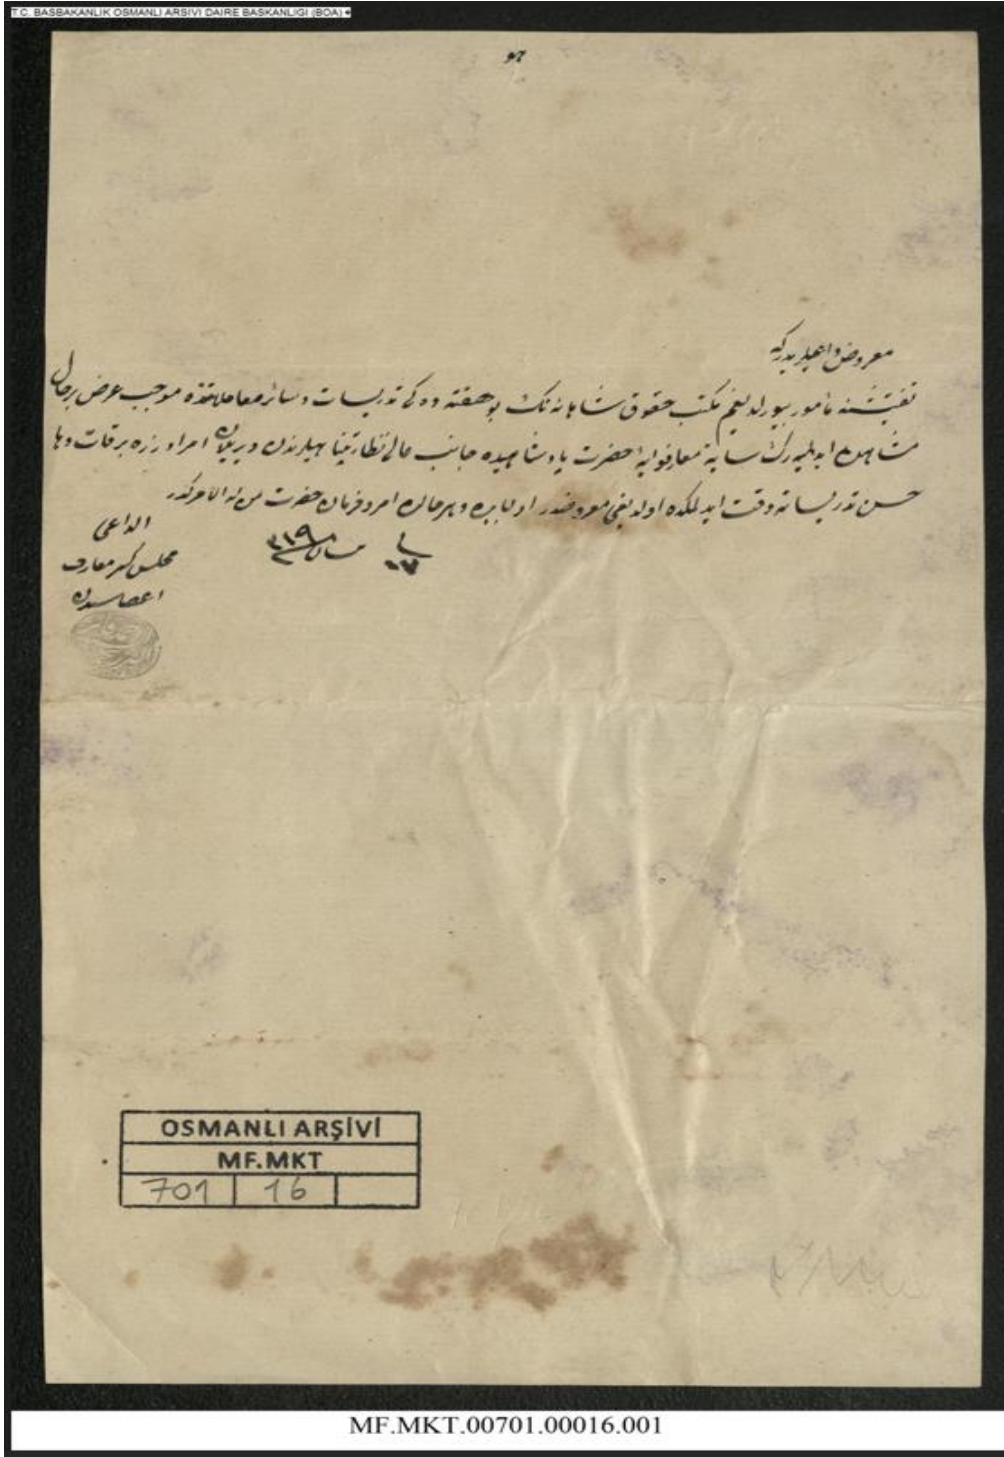 T.C. BASBAKANLIK OSMANLI ARSIVI DAIRE BASKANLIGI (BOA)
هو
معروض داعیلریدركه
تفتیشنه مأمور بیورلدیغم مكتب حقوق شاهانه نك بو هفته ده كی تدریسات و سائر معاملاتنده موجب عرض بر حال
مشاهده ایدلمیه رك سایهٔ معارفوایهٔ حضرت پادشاهیده جانب عالی نظارتپناهیلرندن ویریلان امر اوزره
حسن تدریساته دقت ایدلمكده اولدیغی معروضدر اولبابده و هر حالده امر و فرمان حضرت من له الامركدر
سنه ٣١٩
الداعی
مجلس كبیر معارف
اعضاسندن
OSMANLI ARŞİVİ
MF.MKT
701 16
MF.MKT.00701.00016.001